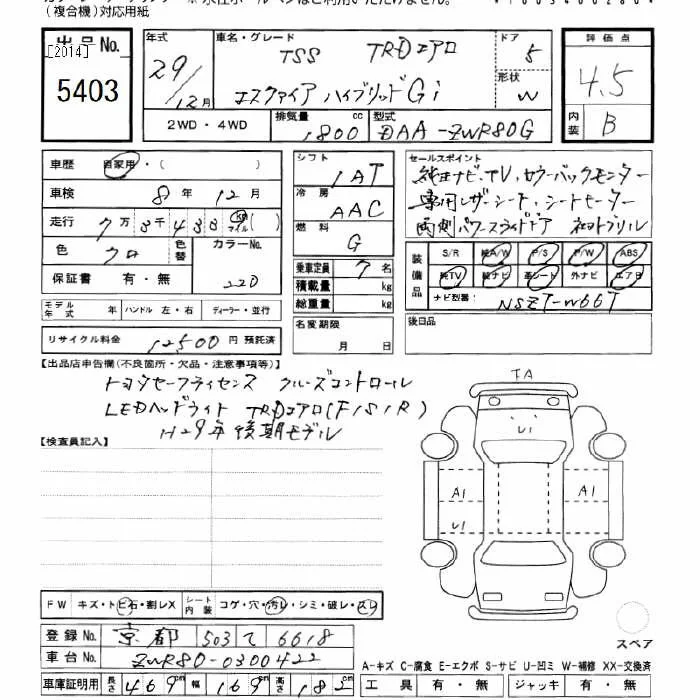 (複合機)対応用紙
出品No.
[2014]
5403
年式 29/12月
車名・グレード TSS TRDエアロ
エスクァイア ハイブリッドGi
ドア 5
形状 W
評価点 4.5
内装 B
2WD・4WD
排気量 1800 cc
型式 DAA-ZWR80G
車歴 自家用・( )
車検 8年 12月
走行 7万 3千 433 km マイル ( )
色 クロ 色替 カラーNo. 220
保証書 有・無
モデル年式 年 ハンドル 左・右 ディーラー・並行
リサイクル料金 12500円 預託済
シフト 1AT
冷房 AAC
燃料 G
乗車定員 7名
積載量 kg
総重量 kg
名変期限 月 日
セールスポイント
純正ナビ、TV、セウ・バックモニター
専用レザーシート、シートヒーター
両側パワースライドドア
装備品 S/R 純A/W P/S P/W ABS
純TV 純ナビ 革シート 外ナビ エアB
ナビ型番: NSZT-W66T
後日品
【出品店申告欄(不良箇所・欠品・注意事項等)】
トヨタセーフティセンス クルーズコントロール
LEDヘッドライト TRDエアロ(F/S/R)
H29年後期モデル
【検査員記入】
TA
U1
A1
A1
U1
スペア
FW キズ・トビ石・割レX シート内装 コゲ・穴・汚レ・シミ・破レ・スレ
登録No. 京都 503 て 6618
車台No. ZWR80-0300422
車庫証明用 長さ 469cm 幅 169cm 高さ 182cm
A-キズ C-腐食 E-エクボ S-サビ U-凹ミ W-補修 XX-交換済
工具 有・無 ジャッキ 有・無